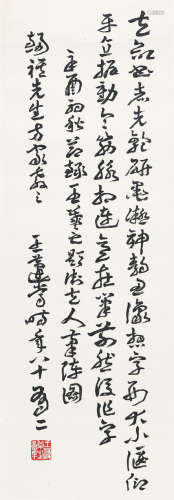 夫欲書者先乾研墨凝神靜思預想字形大小偃仰
平直振動令筋脈相連意在筆前然後作字
辛酉初秋節錄王羲之題衛夫人筆陣圖
先生方家教之
王蘧常時年八十有二